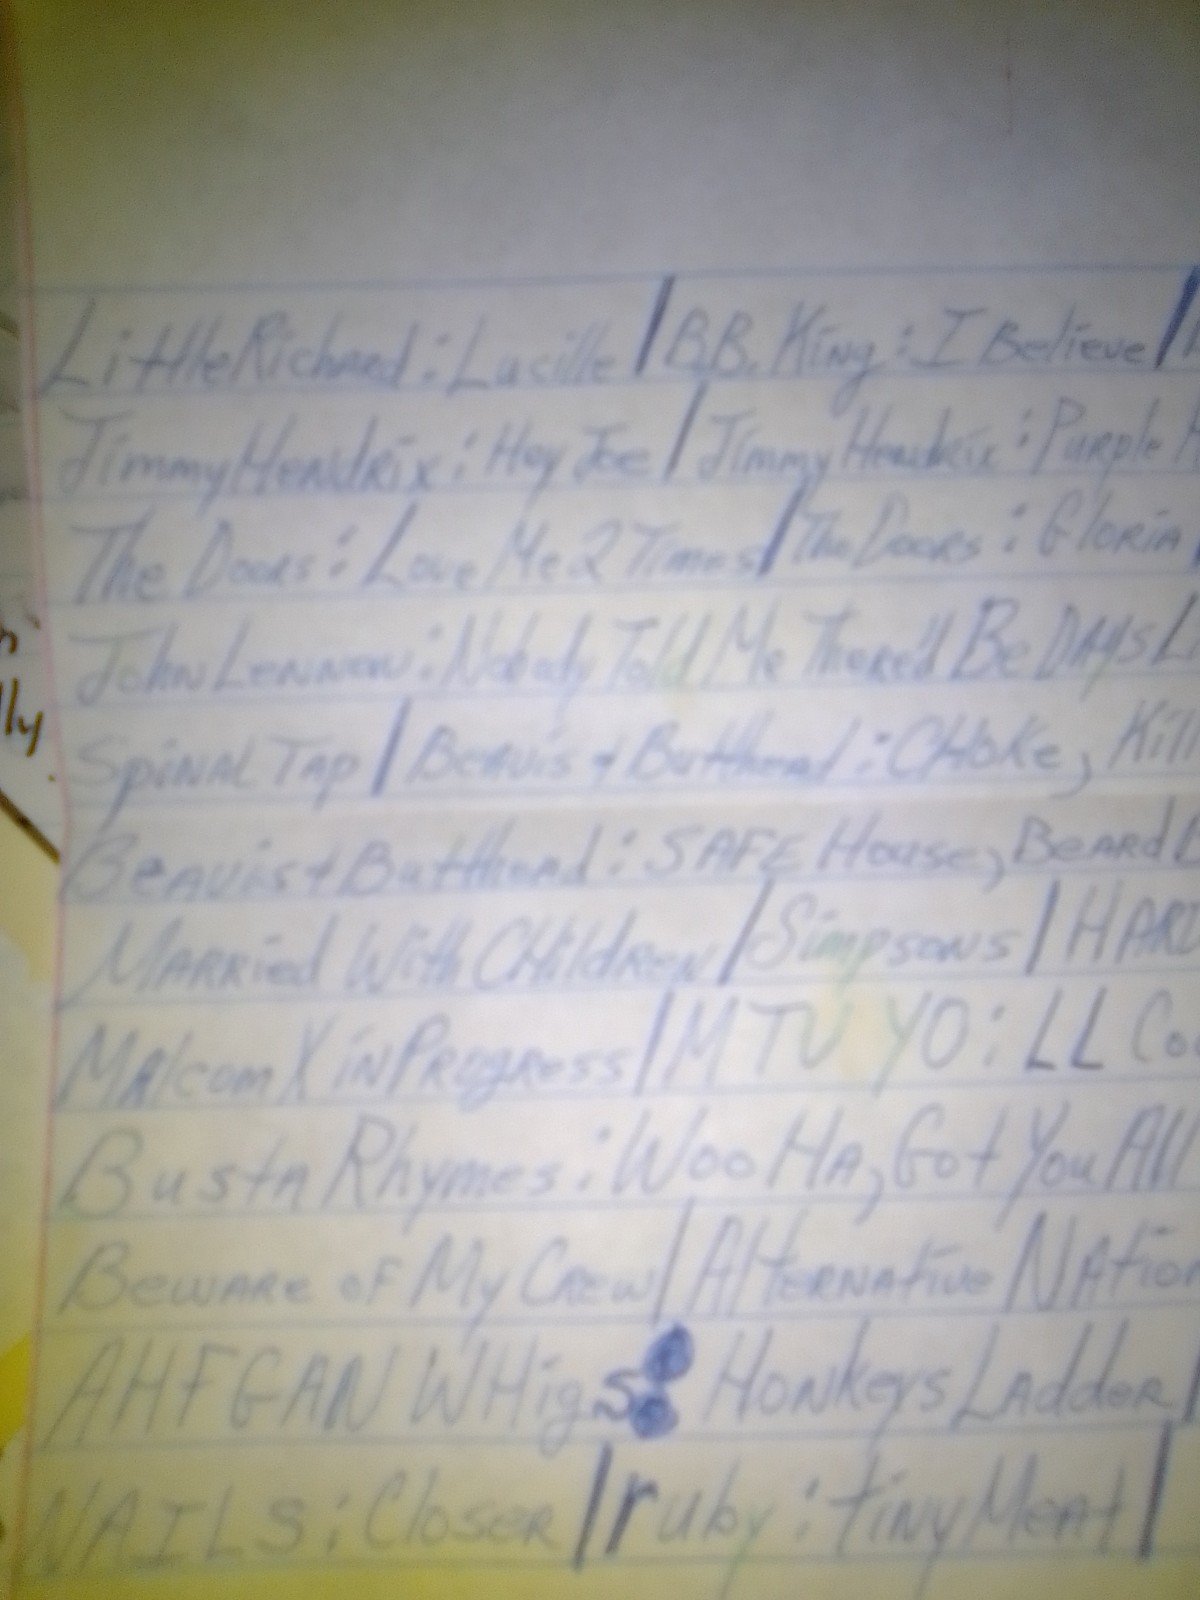 Little Richard : Lucille / B.B. King : I Believe /
Jimmy Hendrix : Hey Joe / Jimmy Hendrix : Purple H
The Doors : Love Me 2 Times / The Doors : Gloria /
John Lennon : Nobody Told Me There'd Be DAYS Li
Spinal Tap / Beavis + Butthead : CHoke, Kill
lly
Beavis + Butthead : SAFE House, Beard
Married With CHildren / Simpsons / HARD
Malcom X in Progress / MTV YO : LL Coo
Busta Rhymes : Woo HA, Got You All
Beware of My Crew / Alternative Nation
AHFGAN WHigs : Honkeys Ladder /
NAILS : Closer / ruby : tiny Meat /